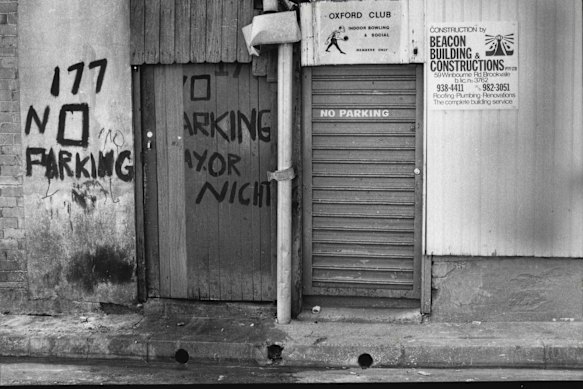 177
NO
no
PARKING
NO 177
PARKING
AYOR
NIGHT
OXFORD CLUB
INDOOR BOWLING
& SOCIAL
MEMBERS ONLY
NO PARKING
CONSTRUCTION by
BEACON
BUILDING &
CONSTRUCTIONS PTY LTD
59 Winbourne Rd. Brookvale
b. lic. no 3762
938-4411 982-3051
Roofing·Plumbing·Renovations
The complete building service